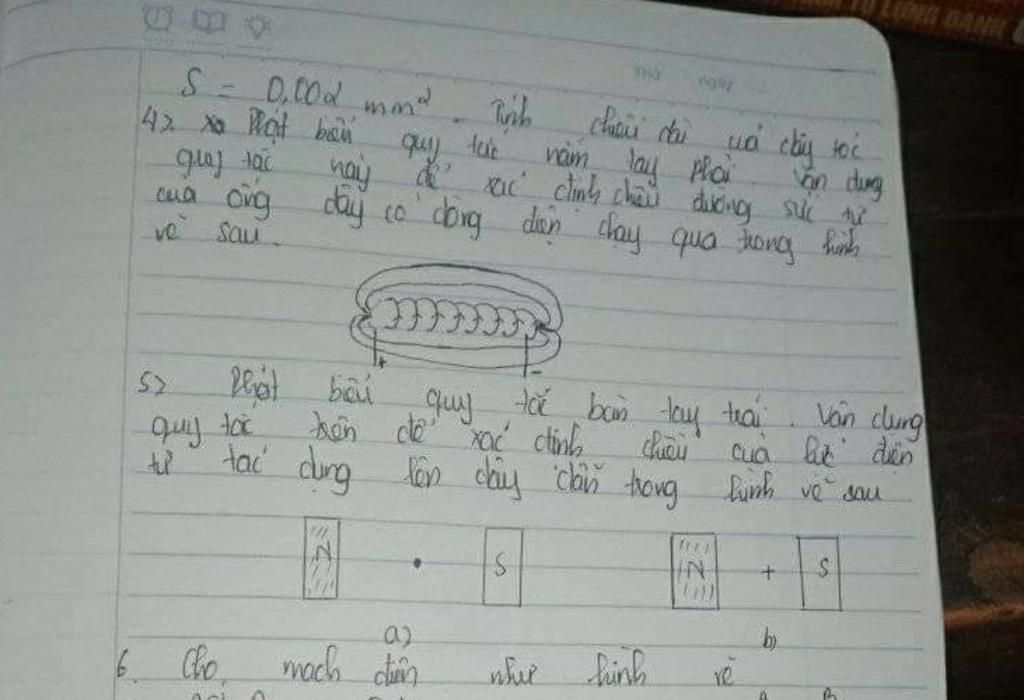 Thứ ngày
S = 0,002 mm². Tính chiều dài của dây tóc
4> Phát biểu quy tắc nắm tay phải. Vận dụng
quy tắc này để xác định chiều đường sức từ
của ống dây có dòng điện chạy qua trong hình
vẽ sau.
+ -
5> Phát biểu quy tắc bàn tay trái. Vận dụng
quy tắc trên để xác định chiều của lực điện
từ tác dụng lên dây dẫn trong hình vẽ sau
N • S N + S
a) b)
6. Cho mạch điện như hình vẽ
A B